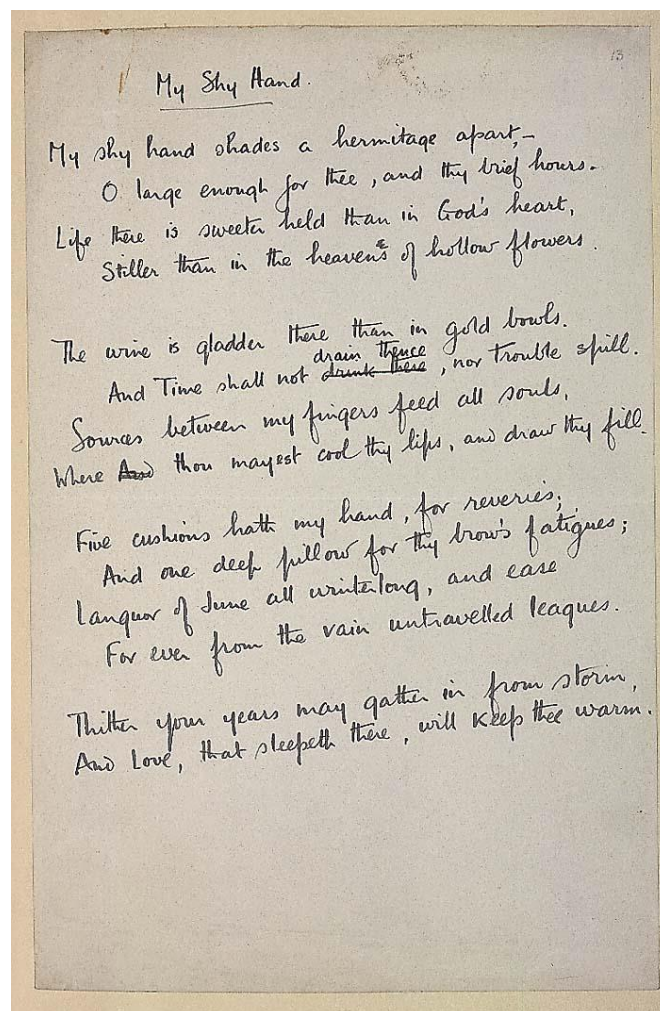 13
My Shy Hand.
My shy hand shades a hermitage apart,—
O large enough for thee, and thy brief hours.
Life there is sweeter held than in God's heart,
Stiller than in the heavens of hollow flowers.
The wine is gladder there than in gold bowls.
drain thence
And Time shall not drink there, nor trouble spill.
Sources between my fingers feed all souls,
Where And thou mayest cool thy lips, and draw thy fill.
Five cushions hath my hand, for reveries;
And one deep pillow for thy brow's fatigues;
Languor of June all winterlong, and ease
For ever from the vain untravelled leagues.
Thither your years may gather in from storm,
And Love, that sleepeth there, will keep thee warm.